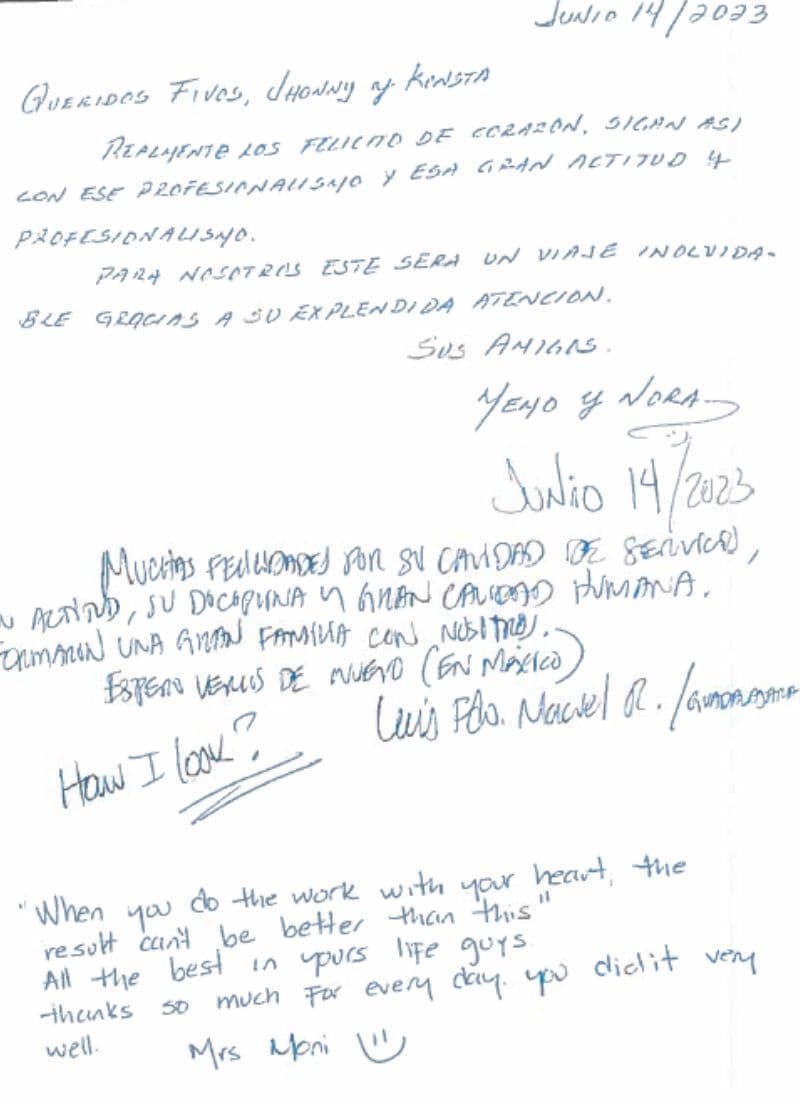 JUNIO 14/2023
QUERIDOS FIVOS, JHONNY y KONSTA
REALMENTE LOS FELICITO DE CORAZON. SIGAN ASI
CON ESE PROFESIONALISMO Y ESA GRAN ACTITUD Y
PROFESIONALISMO.
PARA NOSOTROS ESTE SERA UN VIAJE INOLVIDA-
BLE GRACIAS A SU EXPLENDIDA ATENCION.
SUS AMIGOS.
MEMO Y NORA
JUNIO 14/2023
MUCHAS FELICIDADES POR SU CALIDAD DE SERVICIO,
ACTITUD, SU DOCIPLINA Y GRAN CALIDAD HUMANA.
FORMARON UNA GRAN FAMILIA CON NOSOTROS.
ESPERO VERLOS DE NUEVO (EN MéXICO)
Luis Fdo. R. /GUADALAJARA
How I look?
"When you do the work with your heart, the
result can't be better than this"
All the best in yours life guys
thanks so much For every day. you did it very
well.
Mrs Moni